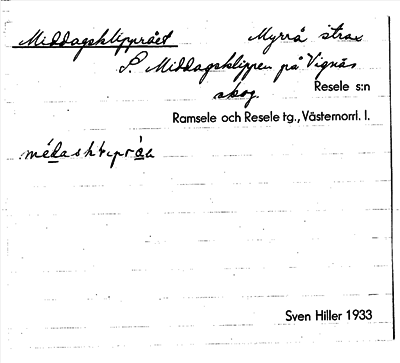 Middagsklipprået Myrrå strax
S. Middagsklippen på Vignäs
skog.
Resele s:n
Ramsele och Resele tg., Västernorrl. l.
Sven Hiller 1933